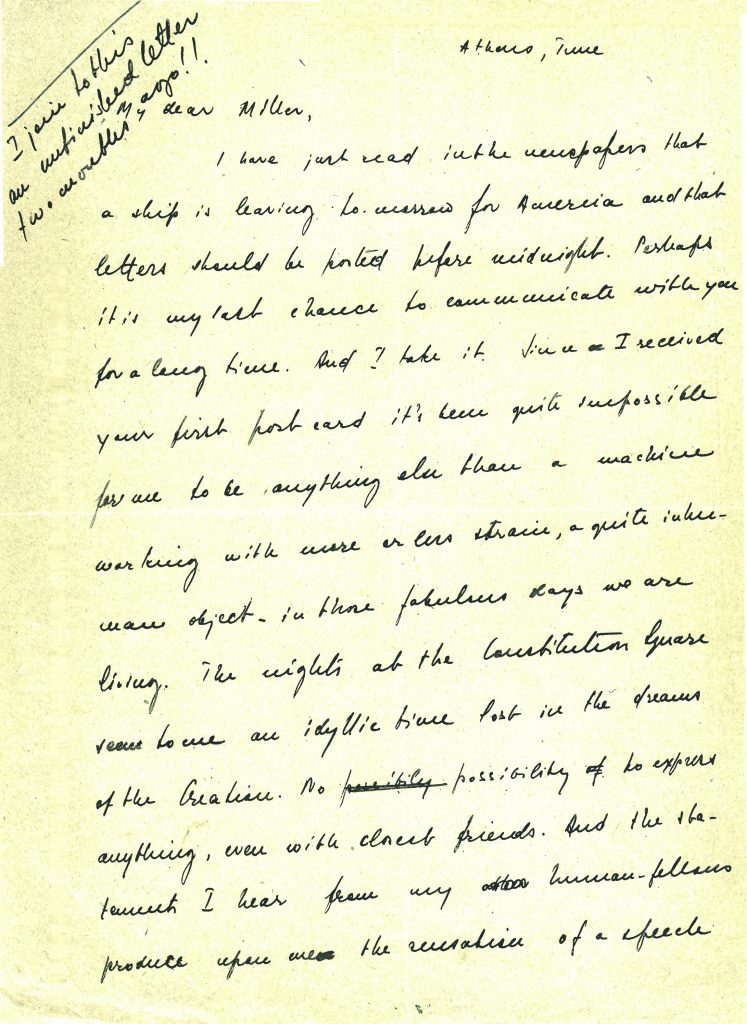 I join to this
an unfinished letter
two months ago!!
Athens, June
My dear Miller,
I have just read in the newspapers that
a ship is leaving to-morrow for America and that
letters should be posted before midnight. Perhaps
it is my last chance to communicate with you
for a long time. And I take it. Since I received
your first post card it's been quite impossible
for me to be anything else than a machine
working with more or less strain, a quite inhu-
man object - in those fabulous days we are
living. The nights at the Constitution Square
seem to me an idyllic time lost in the dreams
of the Creation. No possibily possibility of to express
anything, even with closest friends. And the sta-
tements I hear from my human-fellows
produce upon me the sensation of a speech